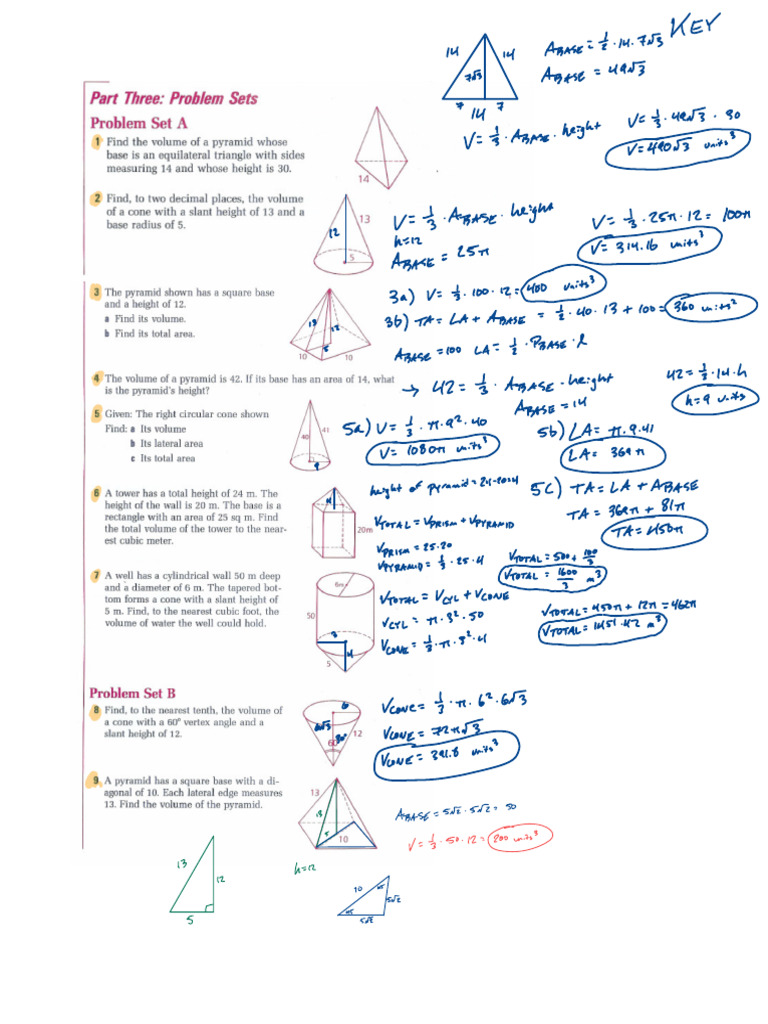 KEY
14
14
7√3
7
7
14
A BASE = 1/2 · 14 · 7√3
A BASE = 49√3
V = 1/3 · A BASE · height
V = 1/3 · 49√3 · 30
V = 490√3 units³
Part Three: Problem Sets
Problem Set A
1 Find the volume of a pyramid whose
base is an equilateral triangle with sides
measuring 14 and whose height is 30.
14
2 Find, to two decimal places, the volume
of a cone with a slant height of 13 and a
base radius of 5.
12
13
5
V = 1/3 · A BASE · height
h=12
A BASE = 25π
V = 1/3 · 25π · 12 = 100π
V = 314.16 units³
3 The pyramid shown has a square base
and a height of 12.
a Find its volume.
b Find its total area.
13
12
5
10
10
3a) V = 1/3 · 100 · 12 = 400 units³
3b) TA = LA + A BASE = 1/2 · 40 · 13 + 100 = 360 units²
A BASE = 100 LA = 1/2 · P BASE · l
4 The volume of a pyramid is 42. If its base has an area of 14, what
is the pyramid's height?
→ 42 = 1/3 · A BASE · height
A BASE = 14
42 = 1/3 · 14 · h
h = 9 units
5 Given: The right circular cone shown
Find: a Its volume
b Its lateral area
c Its total area
40
41
9
5a) V = 1/3 · π · 9² · 40
V = 1080π units³
5b) LA = π · 9 · 41
LA = 369π
5c) TA = LA + A BASE
TA = 369π + 81π
TA = 450π
6 A tower has a total height of 24 m. The
height of the wall is 20 m. The base is a
rectangle with an area of 25 sq m. Find
the total volume of the tower to the near-
est cubic meter.
4
20m
height of pyramid = 24-20=4
V TOTAL = V PRISM + V PYRAMID
V PRISM = 25 · 20
V PYRAMID = 1/3 · 25 · 4
V TOTAL = 500 + 100/3
V TOTAL = 1600/3 m³
7 A well has a cylindrical wall 50 m deep
and a diameter of 6 m. The tapered bot-
tom forms a cone with a slant height of
5 m. Find, to the nearest cubic foot, the
volume of water the well could hold.
6m
50
3
4
5
V TOTAL = V CYL + V CONE
V CYL = π · 3² · 50
V CONE = 1/3 · π · 3² · 4
V TOTAL = 450π + 12π = 462π
V TOTAL = 1451.42 m³
Problem Set B
8 Find, to the nearest tenth, the volume of
a cone with a 60° vertex angle and a
slant height of 12.
6
6√3
30°
60°
12
V CONE = 1/3 · π · 6² · 6√3
V CONE = 72π√3
V CONE = 391.8 units³
9 A pyramid has a square base with a di-
agonal of 10. Each lateral edge measures
13. Find the volume of the pyramid.
13
13
5
10
A BASE = 5√2 · 5√2 = 50
V = 1/3 · 50 · 12 = 200 units³
13
12
5
h=12
10
45
45
5√2
5√2